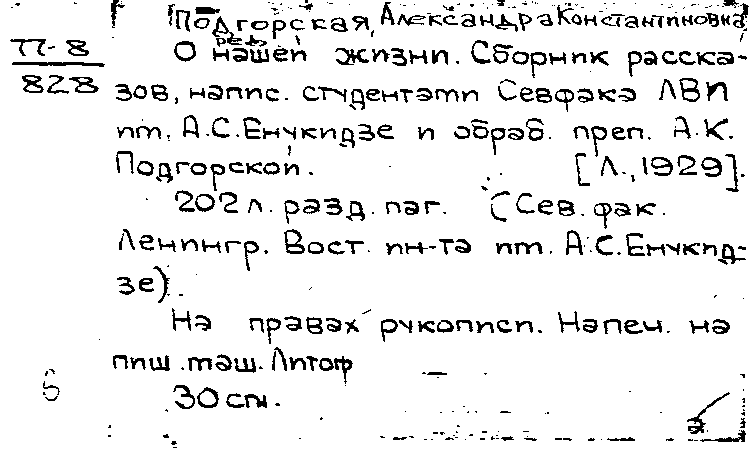 Подгорская, Александра Константиновна,
ред.
П-8
828
О нашей жизни. Сборник расска-
зов, напис. студентами Севфака ЛВИ
им. А.С.Енукидзе и обраб. преп. А.К.
Подгорской. [Л., 1929].
202 л. разд. паг. (Сев. фак.
Ленингр. Вост. ин-та им. А.С.Енукид-
зе).
На правах рукописи. Напеч. на
пиш. маш. Литогр
30 см.